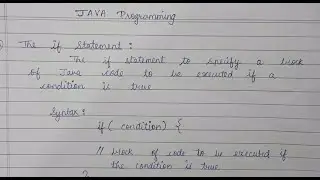 JAVA Programming
The if Statement :
The if statement to specify a block
of Java code to be executed if a
condition is true
Syntax :
if ( condition) {
// block of code to be executed if
the condition is true
}